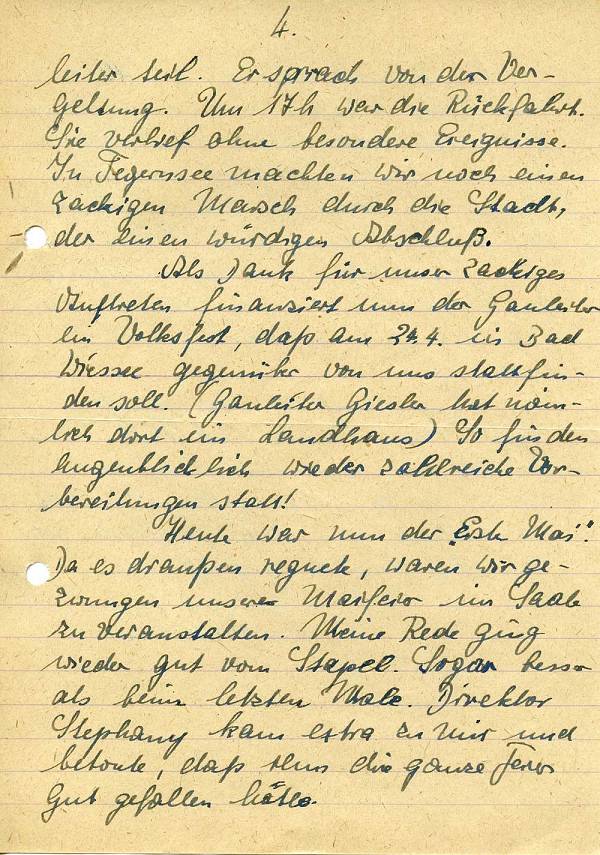 4.
leiter teil. Er sprach von der Ver-
geltung. Um 17h war die Rückfahrt.
Sie verlief ohne besondere Ereignisse.
In Tegernsee machten wir noch einen
zackigen Marsch durch die Stadt,
der einen würdigen Abschluß.
Als Dank für unser zackiges
Auftreten finanziert nun der Gauleiter
ein Volksfest, daß am in Bad
Wiessee gegenüber von uns stattfin-
den soll. (Gauleiter Giesler hat näm-
lich dort ein Landhaus) So finden
augenblicklich wieder zahlreiche Vor-
bereitungen statt!
Heute war nun der "Erste Mai".
Da es draußen regnete, waren wir ge-
zwungen unsere Maifeier im Saale
zu veranstalten. Meine Rede ging
wieder gut vom Stapel. Sogar besser
als beim letzten Male. Direktor
Stephany kam extra zu mir und
betonte, daß ihm die ganze Feier
gut gefallen hätte.